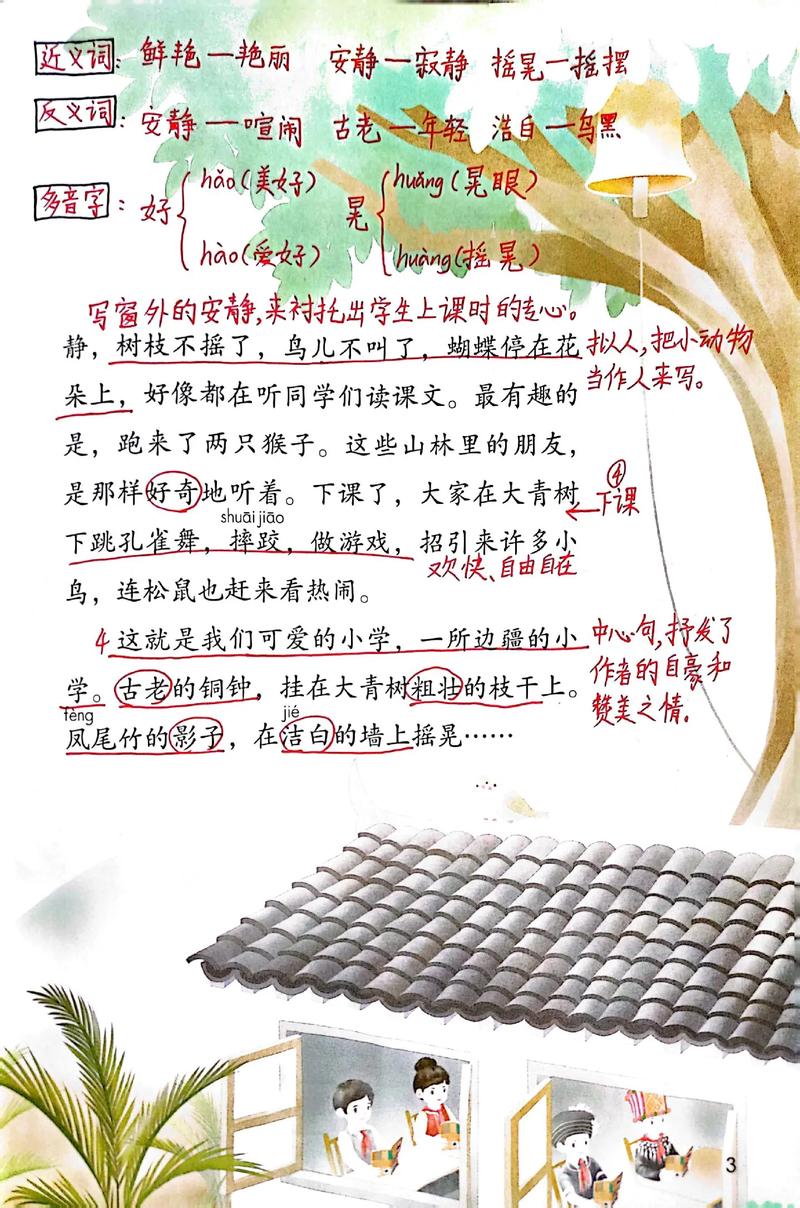 近义词：鲜艳—艳丽 安静—寂静 摇晃—摇摆
反义词：安静—喧闹 古老—年轻 浩白—乌黑
多音字：好 hǎo(美好) 晃 huǎng(晃眼)
hào(爱好) huàng(摇晃)
写窗外的安静,来衬托出学生上课时的专心。
静，树枝不摇了，鸟儿不叫了，蝴蝶停在花
拟人,把小动物
当作人来写。
朵上，好像都在听同学们读课文。最有趣的
是，跑来了两只猴子。这些山林里的朋友，
是那样好奇地听着。下课了，大家在大青树
④
下课
shuāi jiāo
下跳孔雀舞，摔跤，做游戏，招引来许多小
欢快、自由自在
鸟，连松鼠也赶来看热闹。
4 这就是我们可爱的小学，一所边疆的小
中心句,抒发了
作者的自豪和
赞美之情.
学。古老的铜钟，挂在大青树粗壮的枝干上。
fèng jié
凤尾竹的影子，在洁白的墙上摇晃……
3